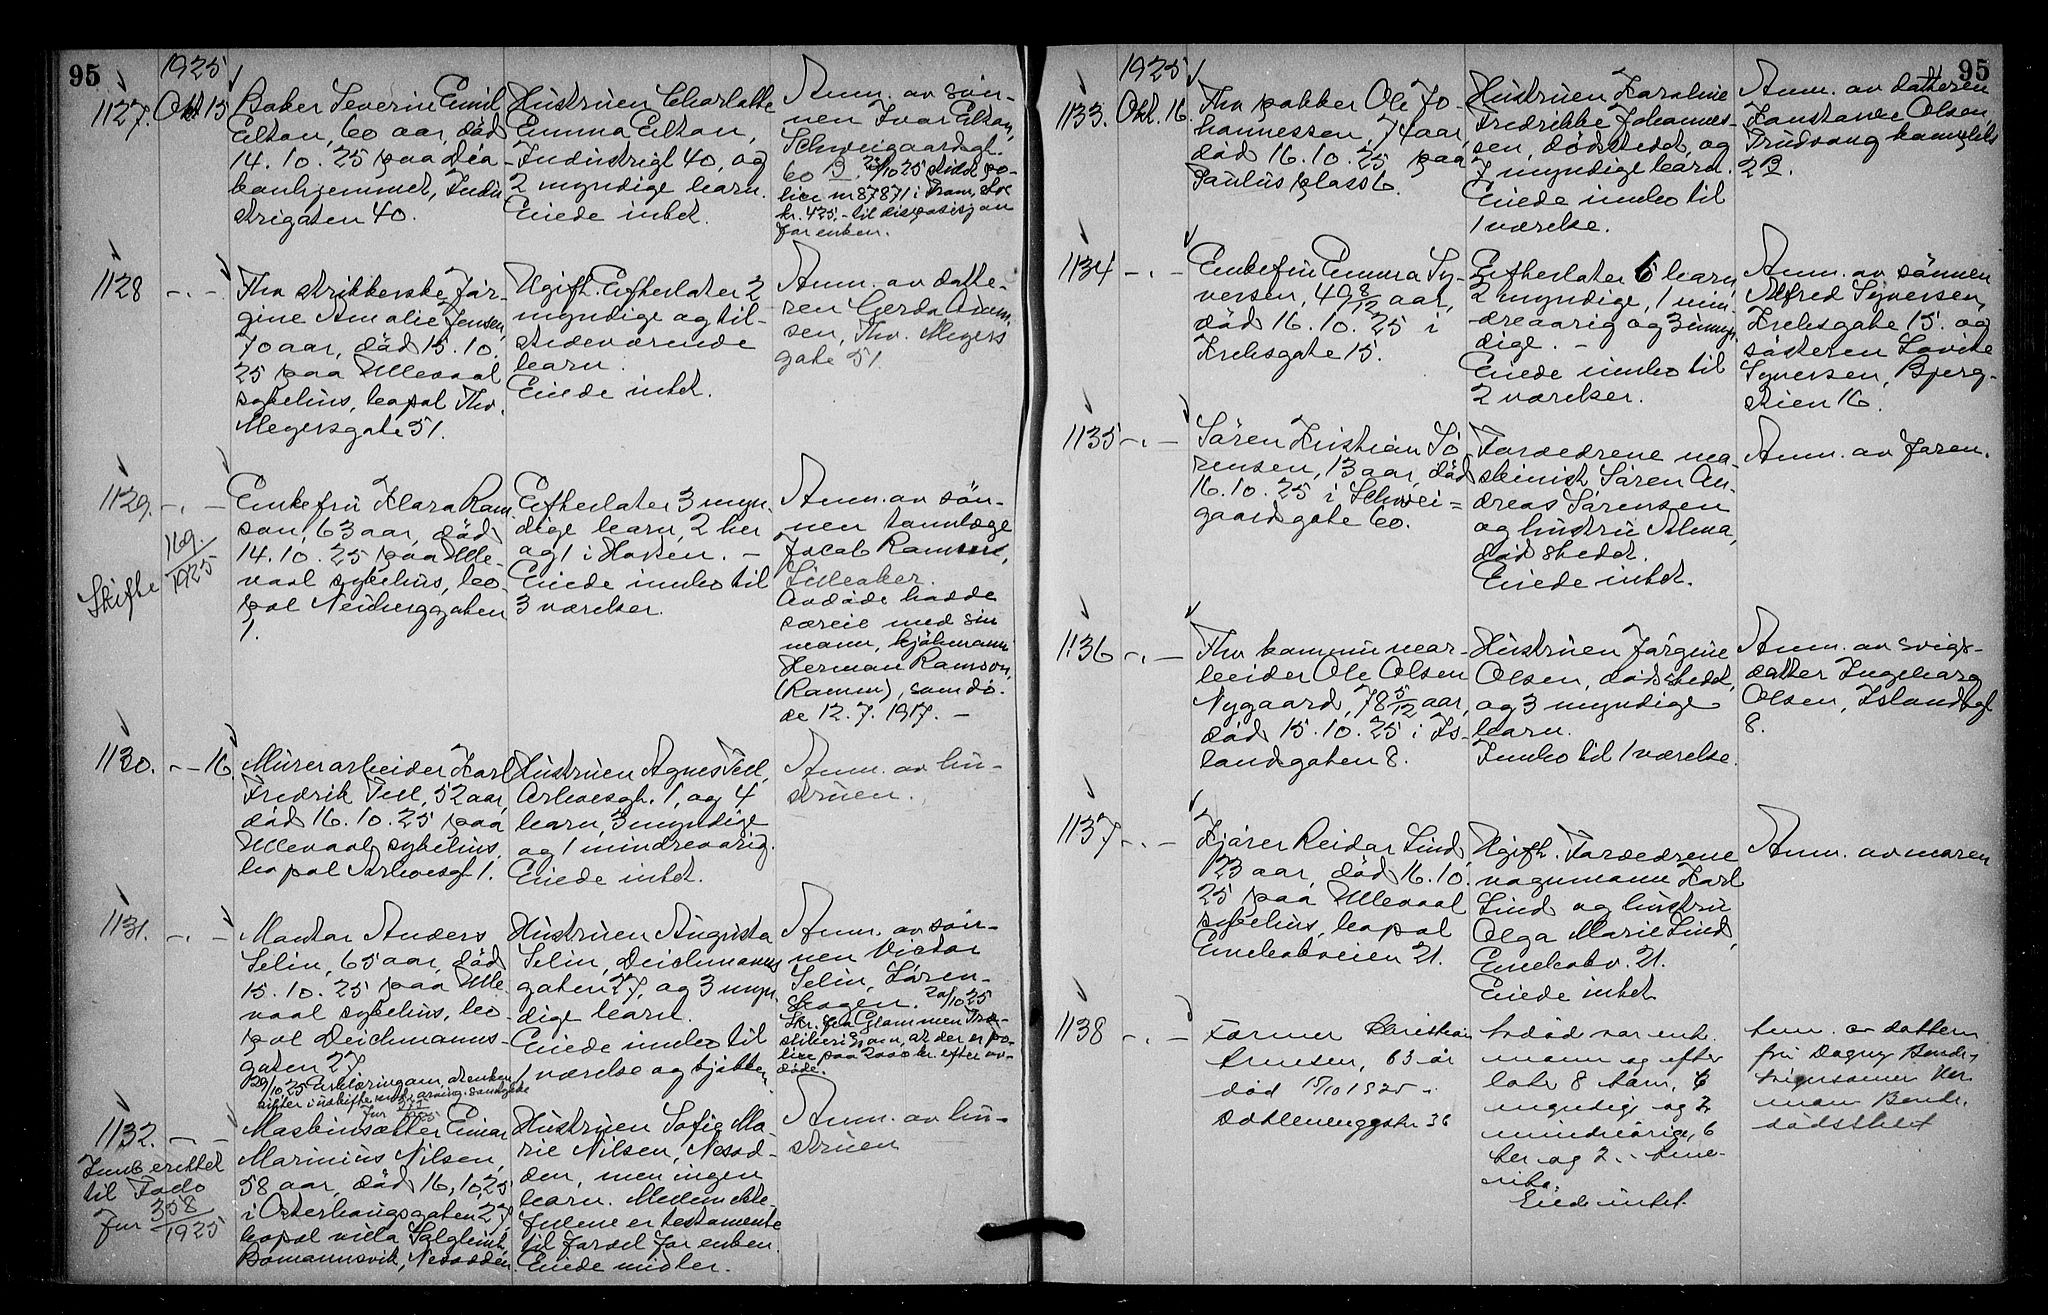 95
1925
1127. Okt 15
Baker Severin Emil
Elton, 60 aar, död
14.10.25 paa Dia-
konhjemmet, Indu
strigaten 40.
Hustruen Charlotte
Emma Elton,
Industrigt 40, og
2 myndige barn.
Eiede intet.
Anm. av søn-
nen Ivar Elton,
Schweigaardsgt.
60 B.
kr. 425.- til disposisjon
for enken.
1128 -.-
Fhv strikkerske Jör-
gine Amalie Jensen,
70 aar, död 15.10.
25 paa Ullevaal
sykehus, bopæl Thv.
Meyersgate 51.
Ugift. Efterlater 2
myndige og til-
stedeværende
barn.
Eiede intet.
Anm. av datte-
ren Gerda
sen, Thv. Meyers
gate 51.
1129. -.-
Skifte 169./1925
Enkefru Klara Ram
son, 63 aar, död
14.10.25 paa Ulle-
vaal sykehus, bo-
pæl Neuberggaten
1.
Efterlater 3 myn-
dige barn, 2 her
og 1 i Horten. -
Eiede innbo til
3 værelser.
Anm. av søn-
nen tannlæge
Jacob Ramson,
Lilleaker.
Avdöde hadde
særeie med sin
mann, kjöbmann
Herman Ramson,
(Ramm), som dö-
de 12.7.1917. -
1130. -.- 16
Murerarbeider Karl
Fredrik Tell, 52 aar,
död 16.10.25 paa
Ullevaal sykehus,
bopæl Arbosgt 1.
Hustruen Agnes Tell,
Arbosgt. 1, og 4
barn, 3 myndige
og 1 mindreaarig.
Eiede intet.
Anm. av hu-
struen.
1131. -.-
Montør Anders
Selin, 65 aar, död
15.10.25 paa Ulle-
vaal sykehus, bo-
pæl Deichmanns-
gaten 27
Hustruen Augusta
Selin, Deichmanns
gaten 27, og 3 myn-
dige barn.
Eiede innbo til
1 værelse og kjökken
Anm. av søn-
nen Victor
Selin, Lören-
skogen. 20/10 25
Skr. fra Glommen Træ-
sliperi om, at der er po-
lise paa 2000 kr. efter av-
döde.
1132. -.-
Innberettet
til Todo
Jnr 358/1925
Maskinsætter Einar
Marinius Nilsen,
58 aar, död 16.10.25
i Osterhaugsgaten 27
bopæl villa Solglimt,
Bomannsvik, Nesodden
Hustruen Sofie Ma-
rie Nilsen, Nesod-
den, men ingen
barn. Mellem ekte-
folkene er testamente
til fordel for enken.
Eiede midler.
Anm. av hu-
struen
95
1925
1133. Okt. 16.
Fhv pakker Ole Jo-
hannessen, 74 aar,
död 16.10.25 paa
Paulus plass 6.
Hustruen Karoline
Fredrikke Johannes-
sen, dödstedet, og
7 myndige barn.
Eiede innbo til
1 værelse.
Anm. av datteren
Konstanse Olsen,
Trudvang
2 B.
1134 -.-
Enkefru Emma Sy-
versen, 40 8/12 aar,
död 16.10.25 i
Krebsgate 15.
Efterlater 6 barn,
2 myndige, 1 min-
dreaarig og 3 umyn-
dige. -
Eiede innbo til
2 værelser.
Anm. av sönnen
Alfred Syversen,
Krebsgate 15. og
sösteren Lovise
Syversen, Bjerg-
stien 16.
1135 -.-
Sören Kristian Sö
rensen, 13 aar, död
16.10.25 i Schwei-
gaardsgate 60.
Forældrene ma-
skinist Sören An-
dreas Sörensen
og hustru Alma,
dödstedet.
Eiede intet.
Anm. av faren.
1136 -.-
Fhv kommunear-
beider Ole Olsen
Nygaard, 78 5/12 aar,
död 15.10.25 i Is-
landsgaten 8.
Hustruen Jörgine
Olsen, dödstedet,
og 3 myndige
barn.
Innbo til 1 værelse.
Anm. av sviger-
datter Ingeborg
Olsen, Islandsgt
8.
1137 -.-
Kjörer Reidar Lind,
23 aar, död 16.10.
25 paa Ullevaal
sykehus, bopæl
Enebakveien 21.
Ugift. Forældrene
vognmann Karl
Lind og hustru
Olga Marie Lind,
Enebakv. 21.
Eiede intet
Anm. av moren
1138 -.-
Former Christian
Arnesen, 63 år
død 15/10 1925 -
Dælenenggata 36
Avdød var enke-
mann og efter
later 8 barn, 6
myndige og 2
mindreårige, 6
her og 2 i Ame-
rika.
Eiede intet
Anm. av datteren
fru Dagny Bendi-
her-
man Bendi.
dödstedet